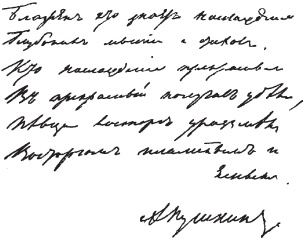 Блаженъ кто знаетъ наслажденье
Глубокихъ мыслей и стиховъ.
Кто наслажденье прекраснымъ
Въ прекрасный получилъ удѣлъ,
восторгъ уразумѣлъ
Восторгомъ пламеннымъ и
Яснымъ.
А Пушкинъ.